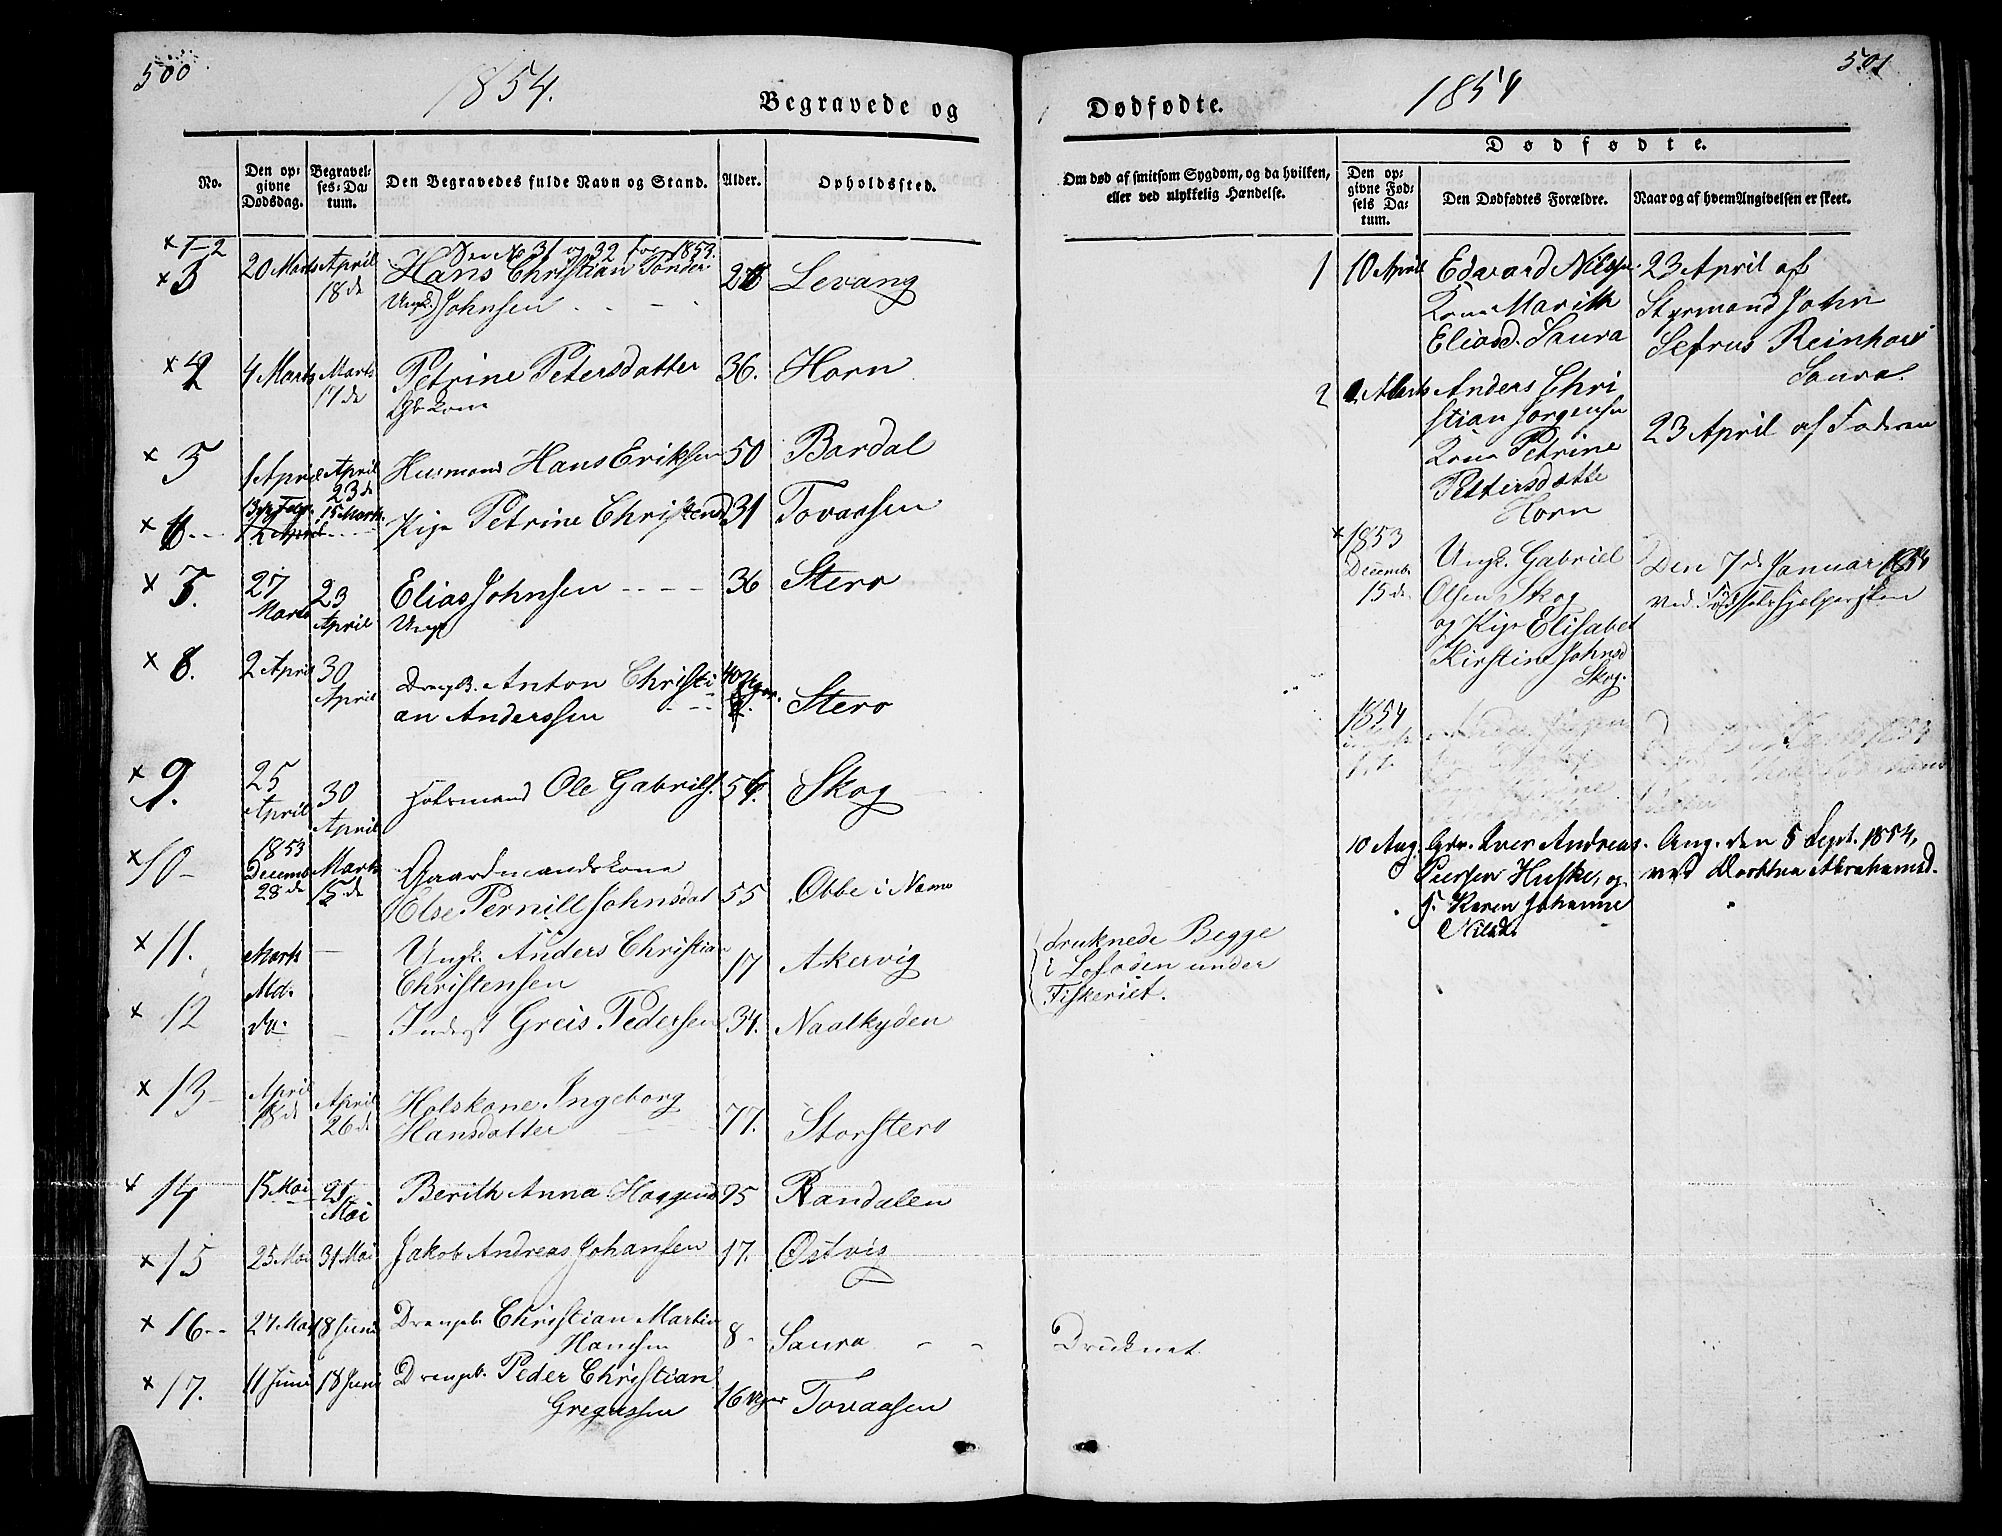 500
1854.
Begravede og
No.
Den op-
givne
Dødsdag.
Begravel-
ses-Da-
tum.
Den Begravedes fulde Navn og Stand.
Alder.
Opholdssted.
× 1-2
See No 31 og 32 for 1853.
× 3
20 Marts
April
18de
Hans Christian Tønder
Ungk. Johnsen
Levang
× 4
4 Marts
Marts
17de
Petrine Petersdatter
Gbkone
36.
Horn
× 5
1 April
April
23de
Husmand Hans Eriksen
50
Bardal
× 6
15 Marts
Pige Petrine Christensd
31
Tovaasen
× 7.
27
Marts
23
April
Elias Johnsen
Ungk
36
Stero
× 8.
2 April
30
April
Drengb. Anton Christi
an Anderssen
Stero
× 9.
25
April
30
April
Ole Gabriels.
54.
Skog
× 10
1853
Decemb
28de
Marts
15de
Gaardmandskone
Else Pernill Johnsdat
55
Obbe i Næsne
× 11.
Marts
Md.
Ungk. Anders Christian
Christensen
17
Akervig
× 12
do.
Inderst Greis Pedersen
34.
Naalkyden
× 13
April
18de
April
26de
Holskone Ingeborg
Hansdatter
77.
Storstero
× 14
15 Mai
21
Mai
Berith Anna Haggensd
25
Randalen
× 15
25 Mai
31 Mai
Jakob Andreas Johansen
17.
Østvig
× 16
27 Mai
18 Juni
Drengeb. Christian Martin
Hansen
8
Saura
× 17.
11 Juni
18 Juni
Drengeb. Peder Christian
Gregussen
16 Uger
Tovaasen
501
1854
Dødfødte.
Om død af smitsom Sygdom, og da hvilken,
eller ved ulykkelig Hændelse.
Dødfødte.
Den op-
givne Fød-
sels Da-
tum.
Den Dødfødtes Forældre.
Naar og af hvem Angivelsen er skeet.
druknede Begge
i Lofoden under
Fiskeriet.
Druknet
1
10 April
Edvard Nilsen
Kone Marith
Eliasd. Saura
23 April af
Styrmand John
Sefrus Reinhart
Saura.
2
Marts
Anders Chri
stian Jørgensen
Kone Petrine
Pettersdatte
Horn
23 April af Faderen
× 1853
Decemb.
15de
Ungk. Gabriel
Olsen Skog
og Pige Elisabet
Kirstine Johnsd
Skog.
Den 7de Januar 1854
ved Fødselshjælpersken
1854
10 Aug.
Iver Andreas
Peersen Huske, og
P. Karen Johanne
Nilsd.
Ang. den 5 Sept. 1854,
ved Dorthea Abrahamsd.